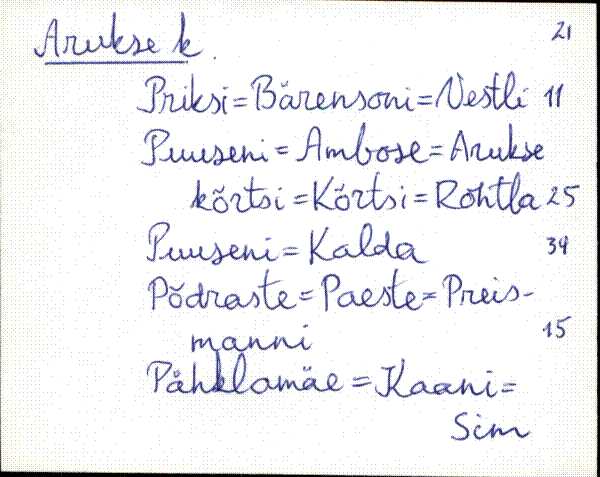 Arukse k. 21
Priksi=Bärensoni=Vestli 11
Puuseni=Ambose=Arukse
kõrtsi=Kõrtsi=Rõhtla 25
Puuseni=Kalda 34
Põdraste=Paeste=Preis-
manni 15
Pähklamäe=Kaani=
Sim